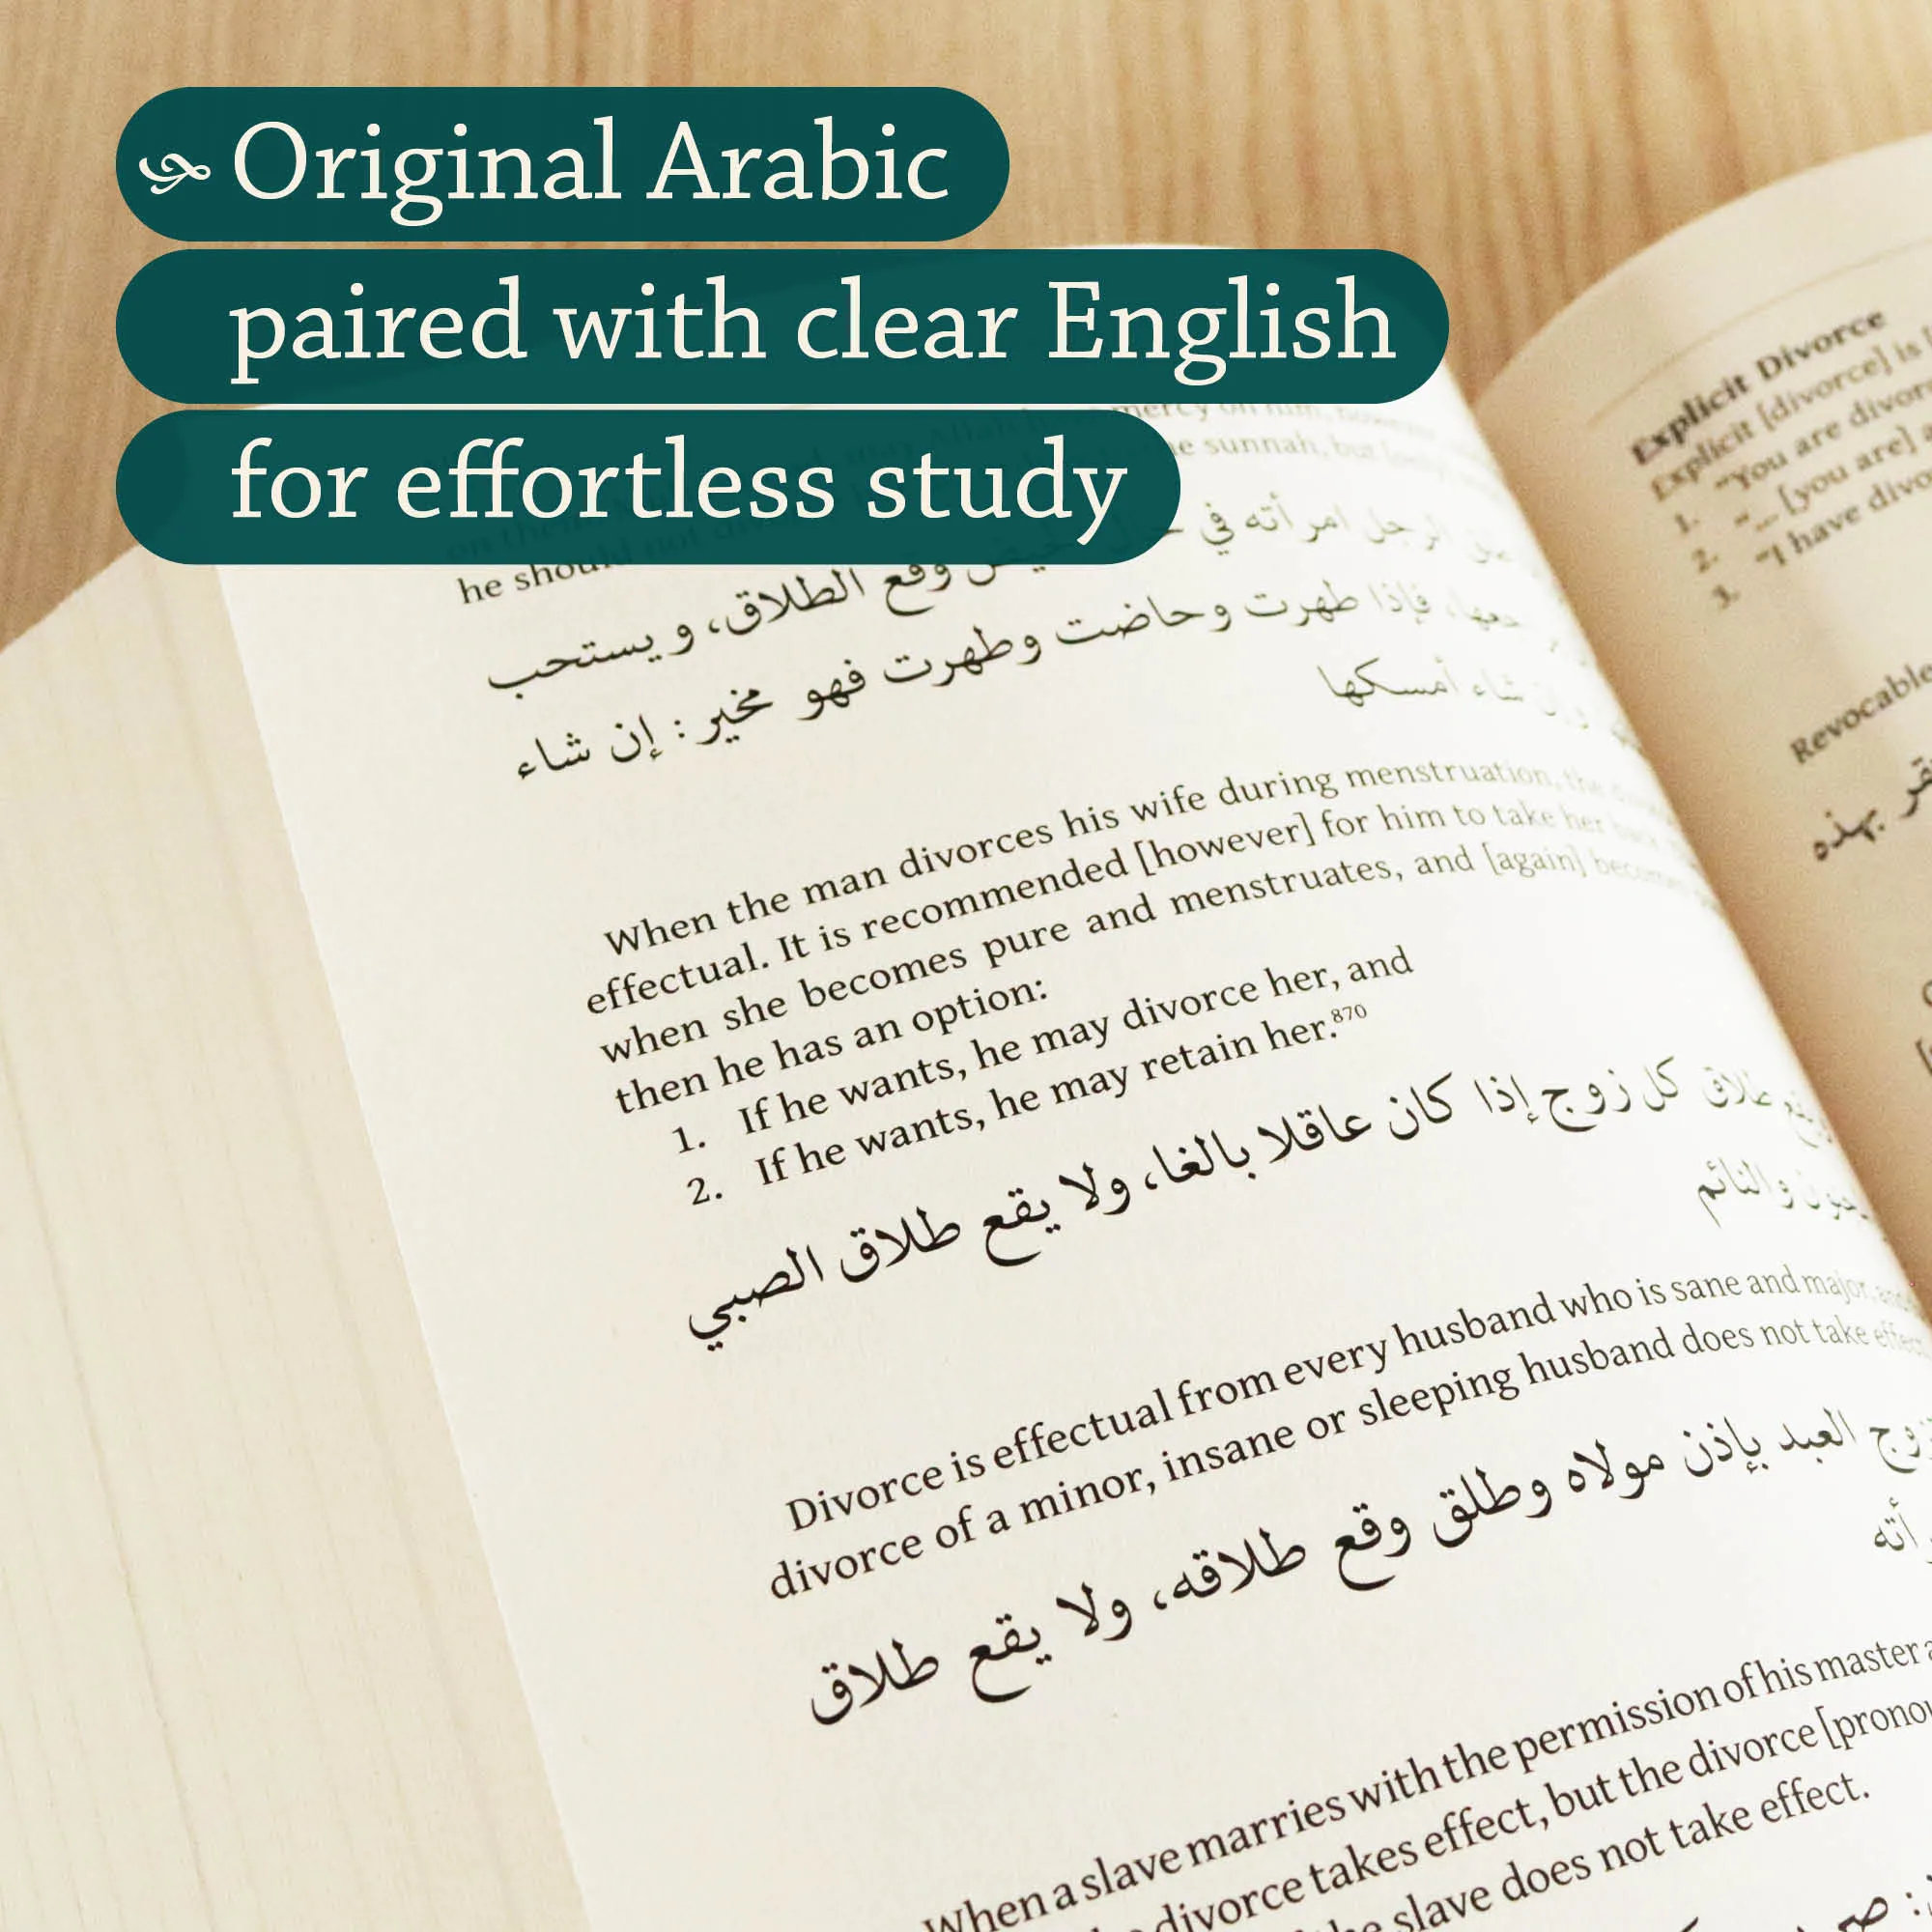 Original Arabic
paired with clear English
for effortless study
mercy on him, however
the sunnah, but
he should not
الرجل امرأته في حال الحيض وقع الطلاق، ويستحب
فإذا طهرت وحاضت وطهرت فهو مخير: إن شاء
شاء أمسكها
When the man divorces his wife during menstruation, the
effectual. It is recommended [however] for him to take her back
when she becomes pure and menstruates, and [again] becomes
then he has an option:
1. If he wants, he may divorce her, and
2. If he wants, he may retain her.870
طلاق كل زوج إذا كان عاقلا بالغا، ولا يقع طلاق الصبي
والنائم
Divorce is effectual from every husband who is sane and major, and
divorce of a minor, insane or sleeping husband does not take effect
العبد بإذن مولاه وطلق وقع طلاقه، ولا يقع طلاق
When a slave marries with the permission of his master
divorce takes effect, but the divorce
slave does not take effect.
Explicit Divorce
Explicit [divorce] is
1. "You are
2. "... [you are]
3. "I have
Revocable
بهذه